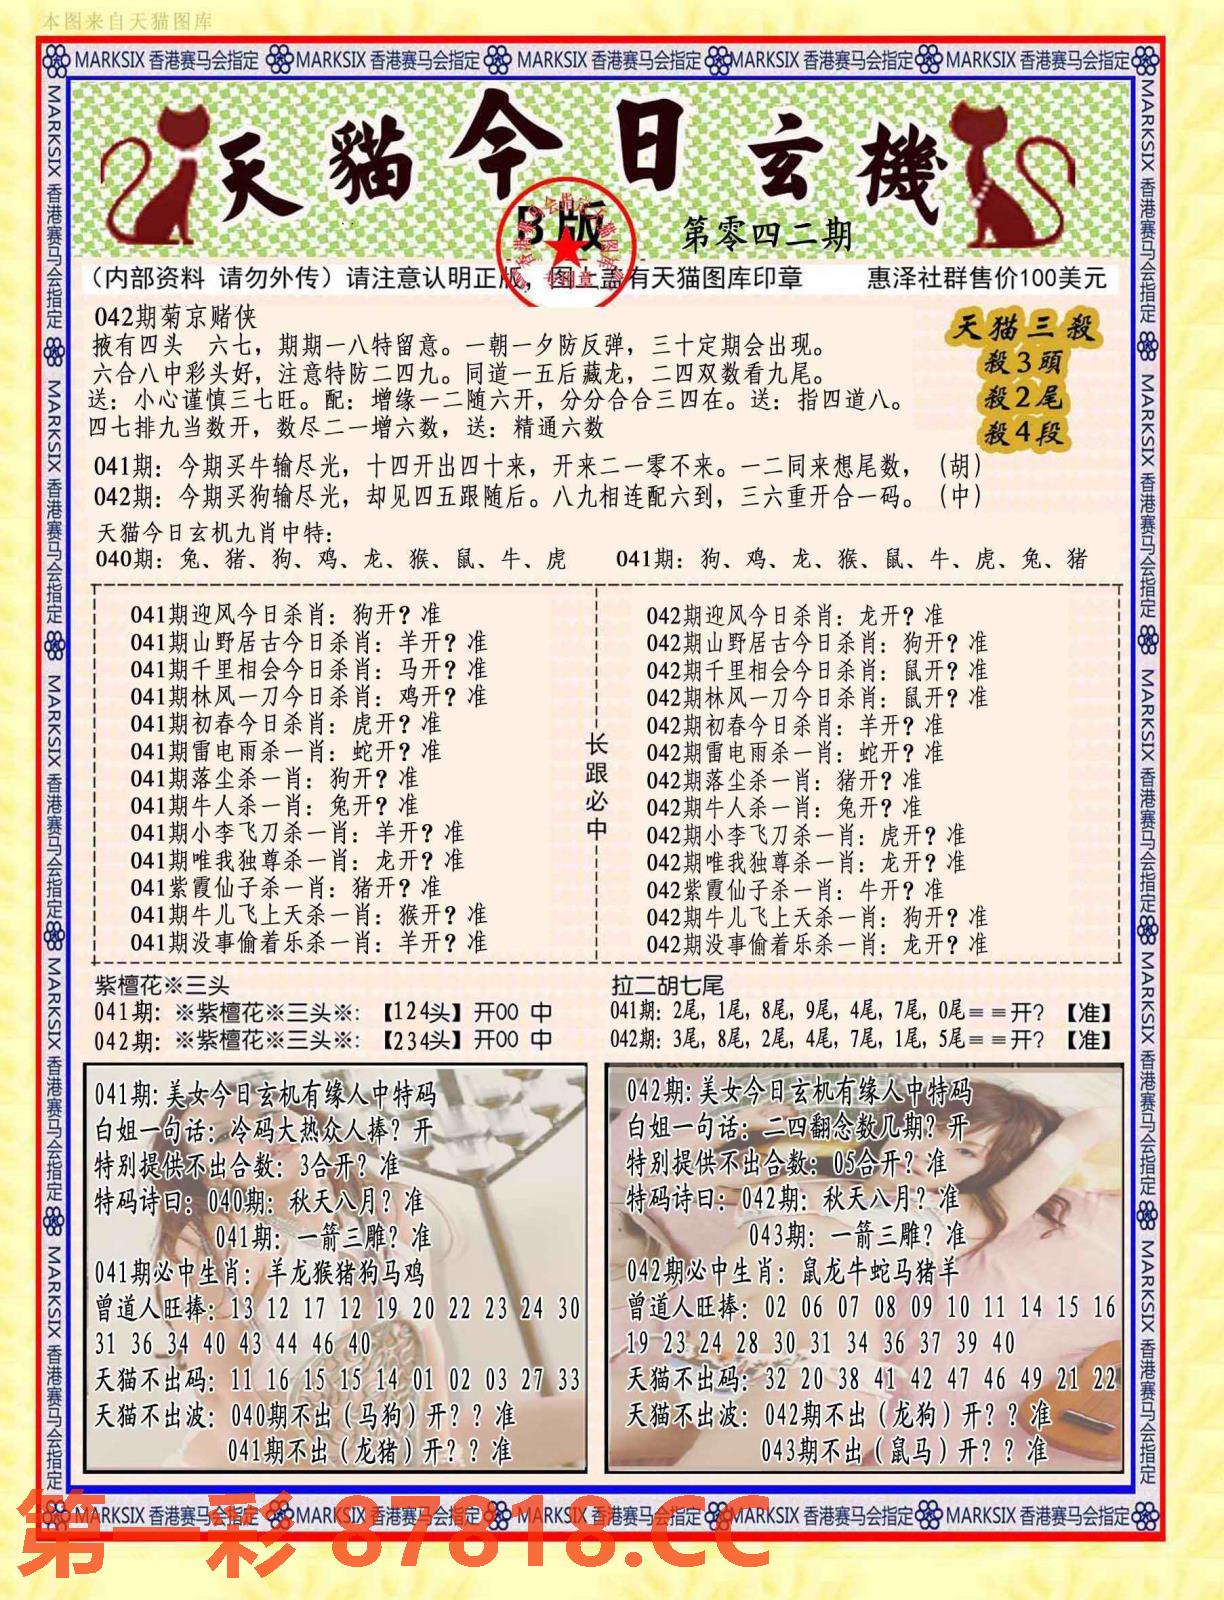 本图来自天猫图库
MARKSIX 香港赛马会指定 MARKSIX 香港赛马会指定 MARKSIX 香港赛马会指定 MARKSIX 香港赛马会指定 MARKSIX 香港赛马会指定
天貓今日玄機
B版
第零四二期
（内部资料 请勿外传）请注意认明正版，图上盖有天猫图库印章 惠泽社群售价100美元
042期菊京赌侠
掖有四头 六七，期期一八特留意。一朝一夕防反弹，三十定期会出现。
六合八中彩头好，注意特防二四九。同道一五后藏龙，二四双数看九尾。
送：小心谨慎三七旺。配：增缘一二随六开，分分合合三四在。送：指四道八。
四七排九当数开，数尽二一增六数，送：精通六数
天猫三殺
殺3頭
殺2尾
殺4段
041期：今期买牛输尽光，十四开出四十来，开来二一零不来。一二同来想尾数，（胡）
042期：今期买狗输尽光，却见四五跟随后。八九相连配六到，三六重开合一码。（中）
天猫今日玄机九肖中特：
040期：兔、猪、狗、鸡、龙、猴、鼠、牛、虎 041期：狗、鸡、龙、猴、鼠、牛、虎、兔、猪
041期迎风今日杀肖：狗开？准
041期山野居古今日杀肖：羊开？准
041期千里相会今日杀肖：马开？准
041期林风一刀今日杀肖：鸡开？准
041期初春今日杀肖：虎开？准
041期雷电雨杀一肖：蛇开？准
041期落尘杀一肖：狗开？准
041期牛人杀一肖：兔开？准
041期小李飞刀杀一肖：羊开？准
041期唯我独尊杀一肖：龙开？准
041紫霞仙子杀一肖：猪开？准
041期牛儿飞上天杀一肖：猴开？准
041期没事偷着乐杀一肖：羊开？准
长跟必中
042期迎风今日杀肖：龙开？准
042期山野居古今日杀肖：狗开？准
042期千里相会今日杀肖：鼠开？准
042期林风一刀今日杀肖：鼠开？准
042期初春今日杀肖：羊开？准
042期雷电雨杀一肖：蛇开？准
042期落尘杀一肖：猪开？准
042期牛人杀一肖：兔开？准
042期小李飞刀杀一肖：虎开？准
042期唯我独尊杀一肖：龙开？准
042紫霞仙子杀一肖：牛开？准
042期牛儿飞上天杀一肖：狗开？准
042期没事偷着乐杀一肖：龙开？准
紫檀花※三头
041期：※紫檀花※三头※：【124头】开00 中
042期：※紫檀花※三头※：【234头】开00 中
拉二胡七尾
041期：2尾，1尾，8尾，9尾，4尾，7尾，0尾＝＝开？【准】
042期：3尾，8尾，2尾，4尾，7尾，1尾，5尾＝＝开？【准】
041期：美女今日玄机有缘人中特码
白姐一句话：冷码大热众人捧？开
特别提供不出合数：3合开？准
特码诗曰：040期：秋天八月？准
041期：一箭三雕？准
041期必中生肖：羊龙猴猪狗马鸡
曾道人旺捧：13 12 17 12 19 20 22 23 24 30
31 36 34 40 43 44 46 40
天猫不出码：11 16 15 15 14 01 02 03 27 33
天猫不出波：040期不出（马狗）开？？准
041期不出（龙猪）开？？准
042期：美女今日玄机有缘人中特码
白姐一句话：二四翻念数几期？开
特别提供不出合数：05合开？准
特码诗曰：042期：秋天八月？准
043期：一箭三雕？准
042期必中生肖：鼠龙牛蛇马猪羊
曾道人旺捧：02 06 07 08 09 10 11 14 15 16
19 23 24 28 30 31 34 36 37 39 40
天猫不出码：32 20 38 41 42 47 46 49 21 22
天猫不出波：042期不出（龙狗）开？？准
043期不出（鼠马）开？？准
MARKSIX 香港赛马会指定 MARKSIX 香港赛马会指定 MARKSIX 香港赛马会指定 MARKSIX 香港赛马会指定 MARKSIX 香港赛马会指定
MARKSIX 香港赛马会指定 MARKSIX 香港赛马会指定 MARKSIX 香港赛马会指定 MARKSIX 香港赛马会指定 MARKSIX 香港赛马会指定
MARKSIX 香港赛马会指定 MARKSIX 香港赛马会指定 MARKSIX 香港赛马会指定 MARKSIX 香港赛马会指定 MARKSIX 香港赛马会指定
第一彩 87818.CC